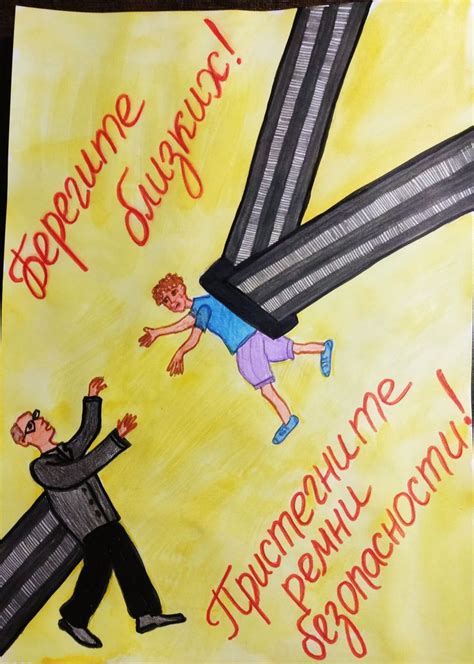 Берегите
близких!
Пристегните
ремни
безопасности!